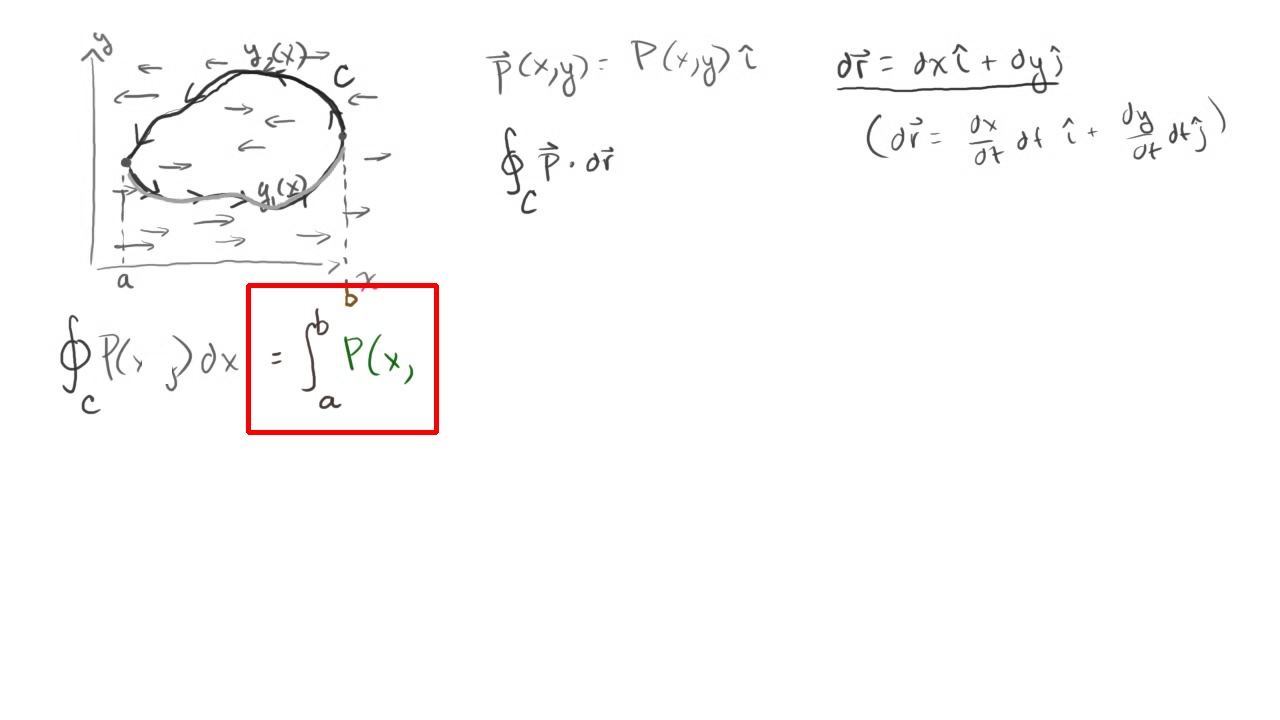 y
y₂(x)
C
y₁(x)
a
b
x
P⃗(x,y) = P(x,y) î
∮_C P⃗ · dr⃗
dr⃗ = dx î + dy ĵ
(dr⃗ = dx/dt dt î + dy/dt dt ĵ)
∮_C P(x, y) dx = ∫_a^b P(x,